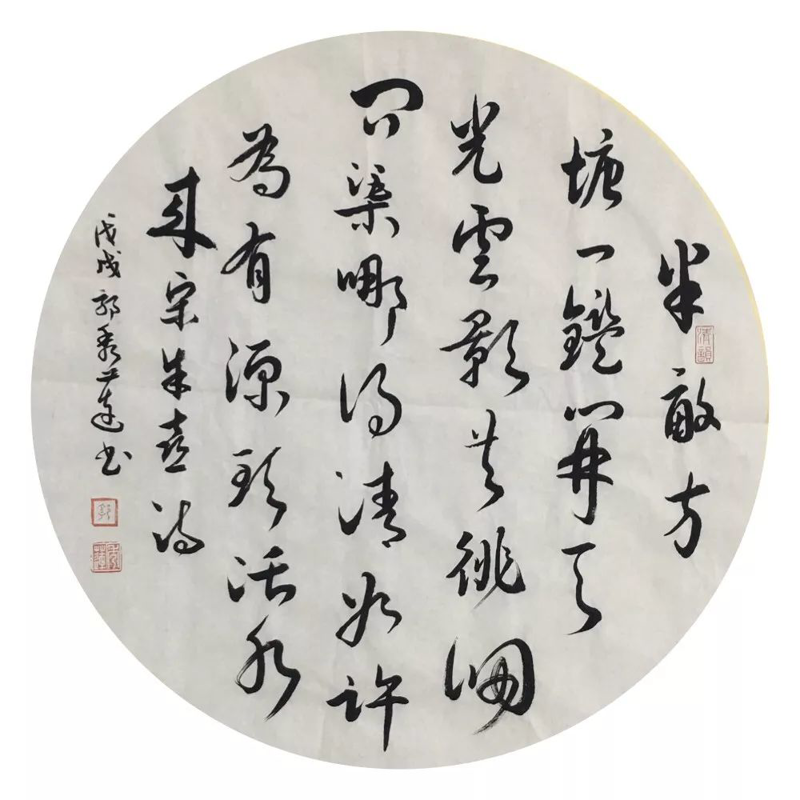 半畝方
塘一鑑開天
光雲影共徘徊
问渠哪得清如許
為有源頭活水
来宋朱熹詩
戊戌郭秀蓮书